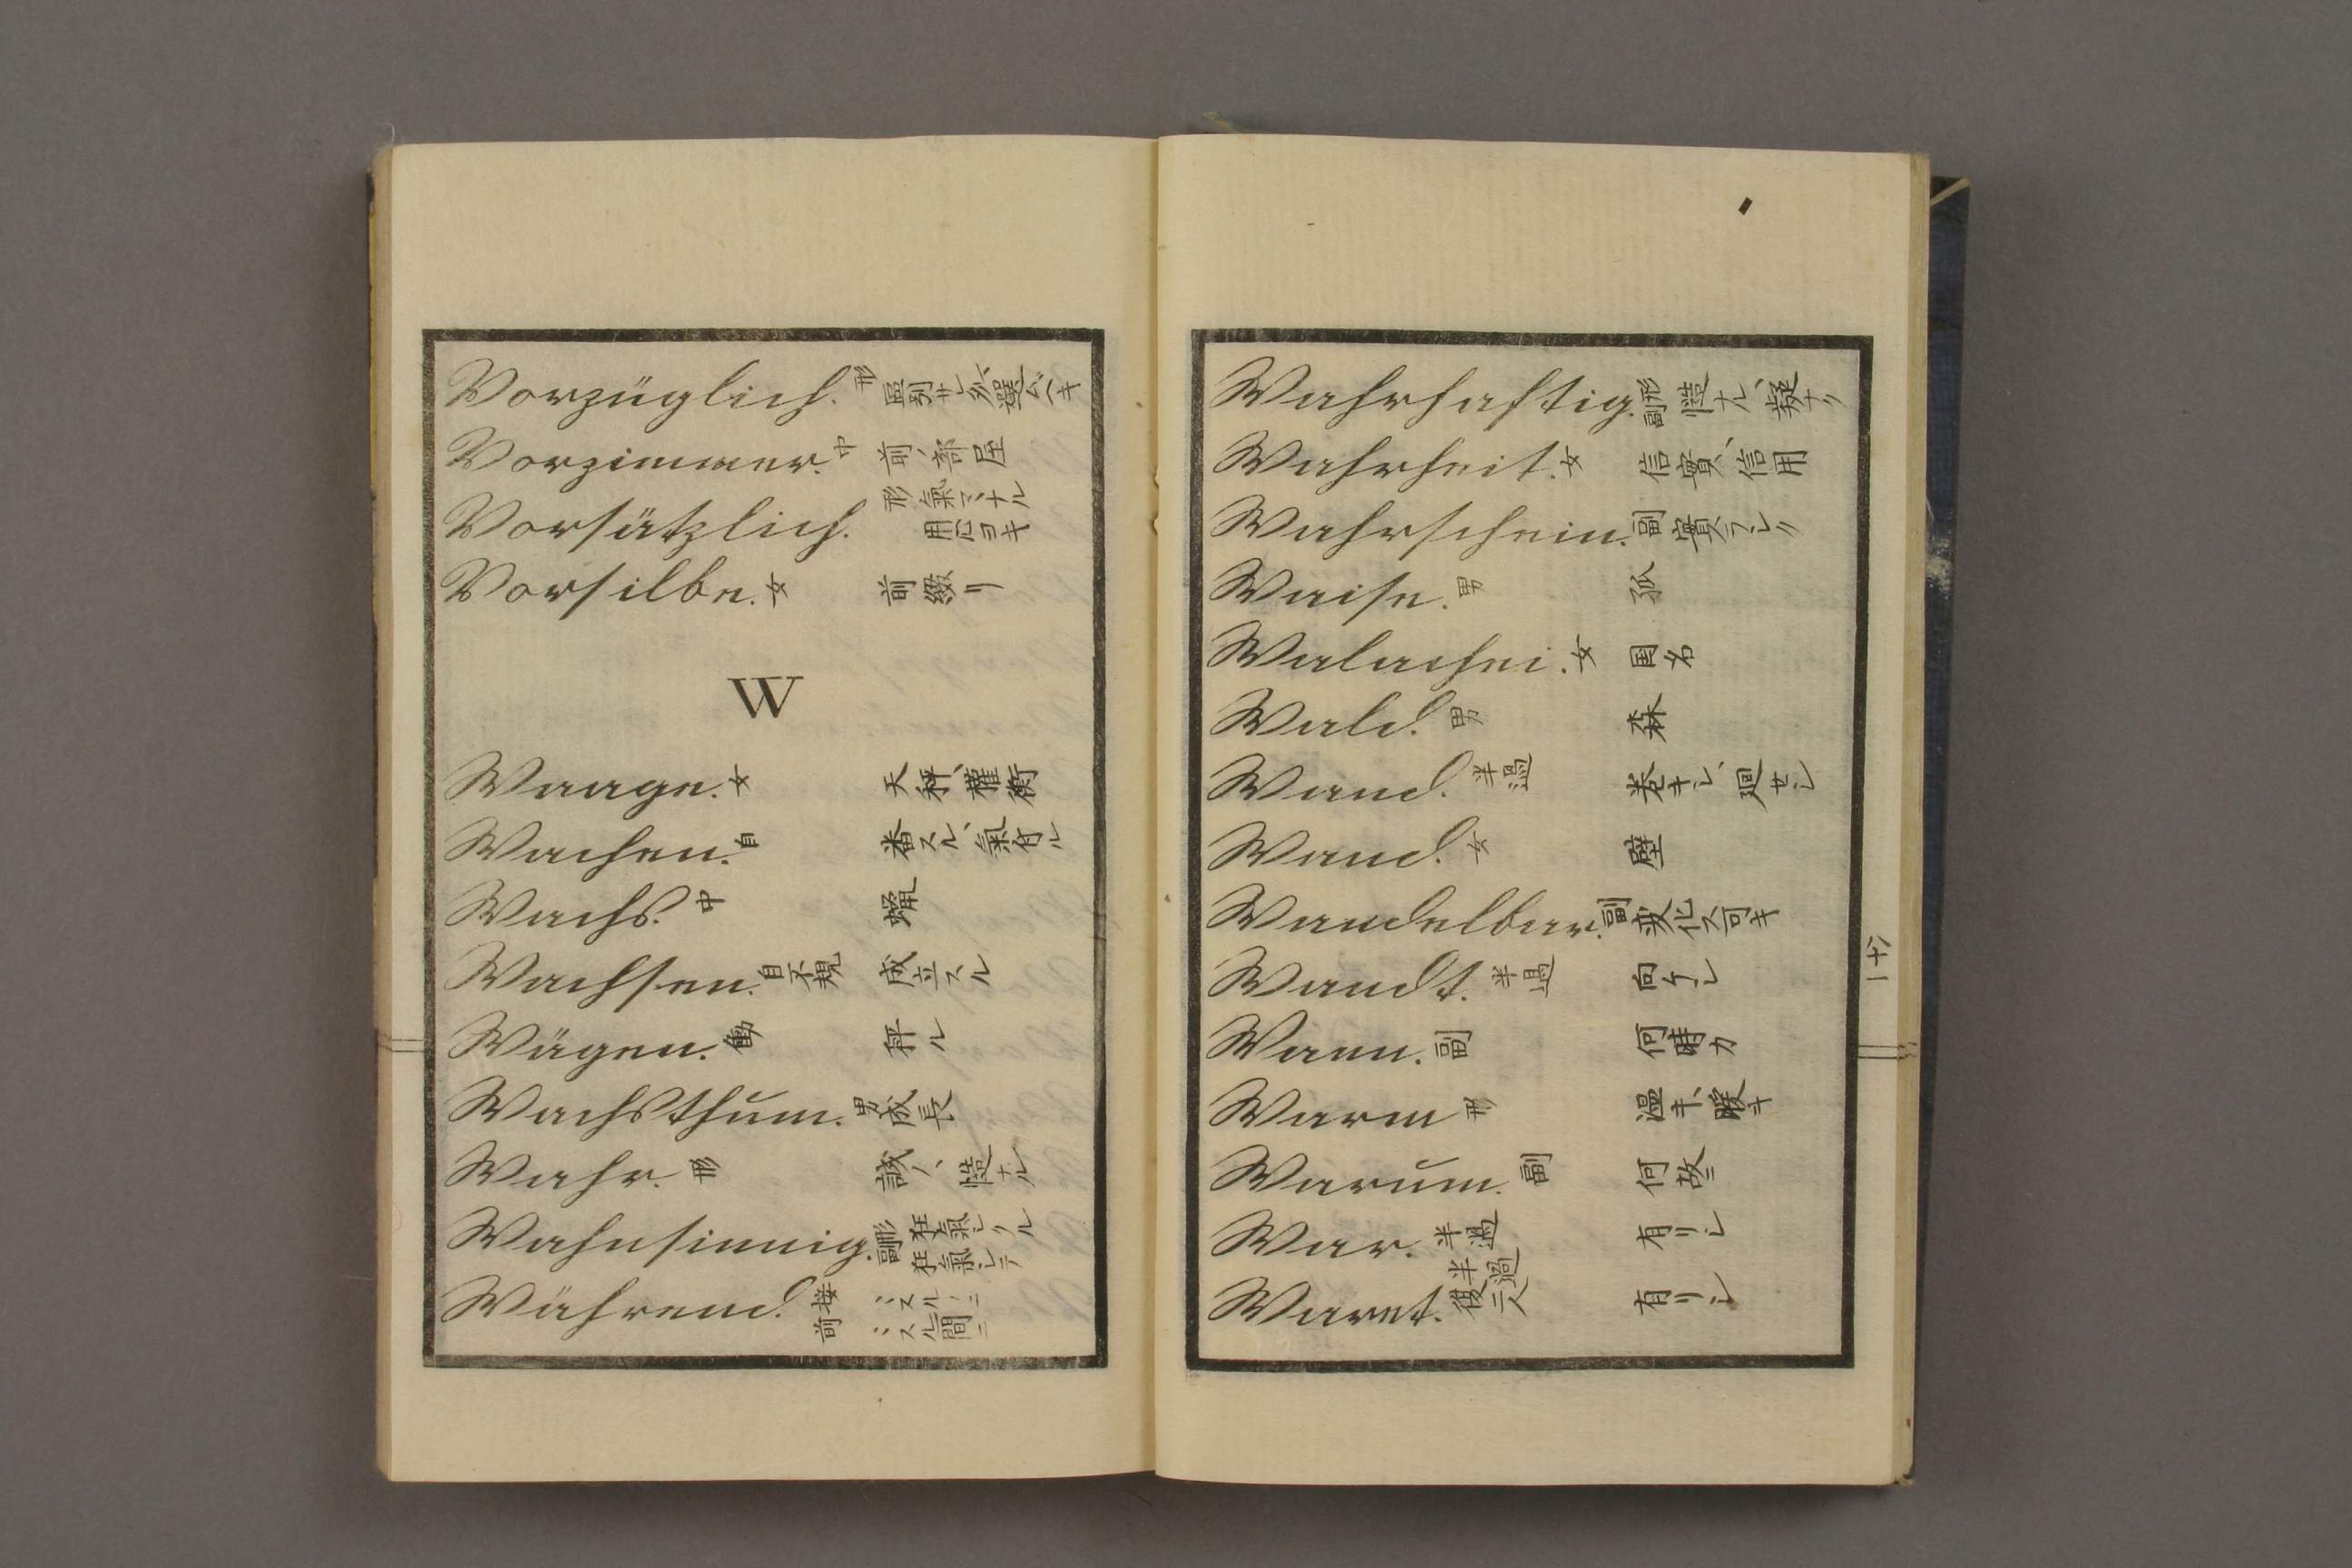 Vorzüglich. 形 區別サレ、選ムベキ
Vorzimmer. 中 前ノ部屋
Vorsätzlich. 形 氣マヽナル
用心ヨキ
Vorsilbe. 女 前綴リ
W
Waage. 女 天秤、權衡
Wachen. 自 番スル、氣付ル
Wachs. 中 蝋
Wachsen. 自不規 成立スル
Wägen. 働 秤ル
Wachsthum. 男 成長
Wahr. 形 誠ノ、慥ナル
Wahnsinnig. 形 狂氣シクル
副 狂氣シテ
Während. 接
前 間ニ
Wahrhaftig. 形副 慥ナル、疑ナク
Wahrheit. 女 信實、信用
Wahrschein. 副 實ラシク
Waise. 男 孤
Walachei. 女 国名
Wald. 男 森
Wand. 半過 巻キシ、廻セシ
Wand. 女 壁
Wandelbar. 副 変化ス可キ
Wandt. 半過 向ケシ
Wann. 副 何時カ
Warm 形 温キ、暖キ
Warum. 副 何故ニ
War. 半過 有リシ
Waret. 半過複二人 有リシ